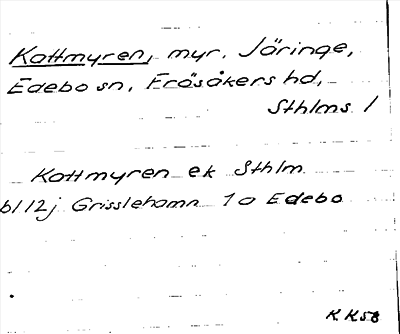 Kattmyren, myr. Järinge,
Edebo sn, Frösåkers hd,
Sthlms l
Kattmyren ek Sthlm
bl 12j Grisslehamn 10 Edebo
K. K 58